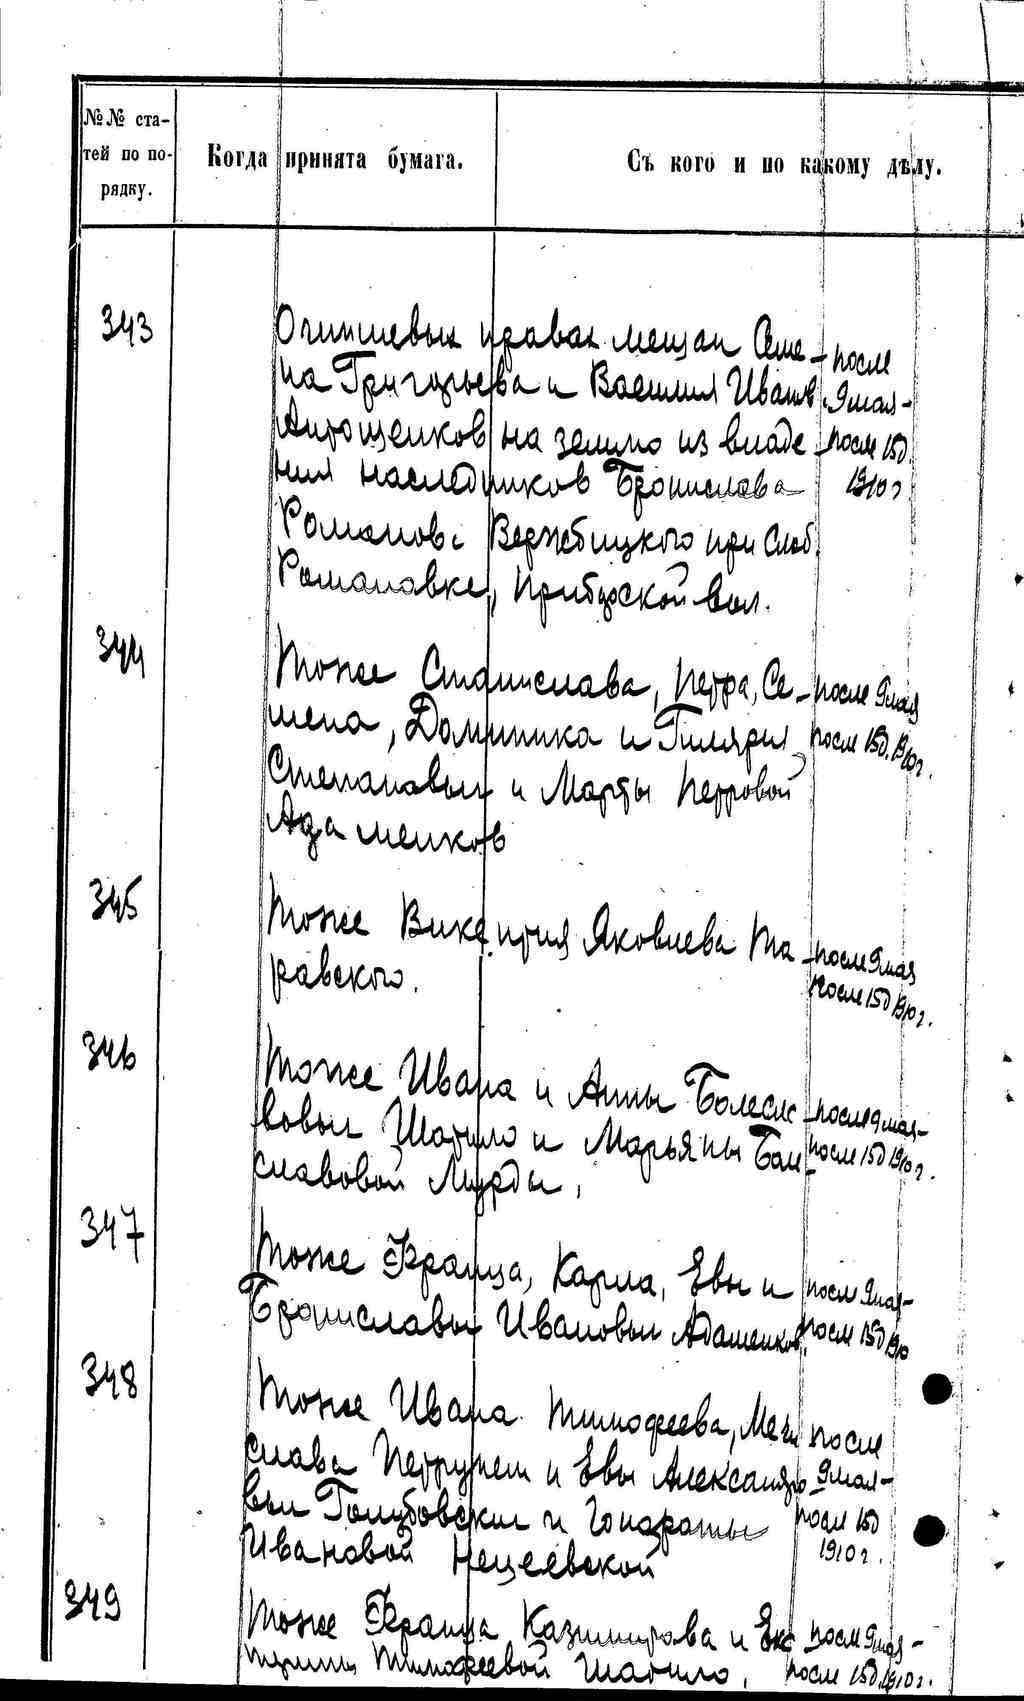 №№ ста-
тей по по-
рядку.
Когда принята бумага.
Съ кого и по какому дѣлу.
343
О чиншевых правах мещан Семе-
на Григорьева и Василия Иванов
Антощенков на землю из владе
ния наследников Бронислава
Романова Вержбицкого при Слоб.
Романовке, Приборской вол.
после
9 мая-
после 15 д.
1910 г
344
тоже Станислава, Петра, Се-
мена, Доминика и Гилярия
Степановых и Марты Петровой
Адаменков
после 9 мая
после 15 д. 1910 г.
345
тоже Викентия Яковлева Та
равского.
после 9 мая
после 15 д 1910 г.
346
тоже Ивана и Анны Болесла
вовых Шатило и Марьяны Бол
славовой Мурды,
после 9 мая-
после 15 д 1910 г.
347
тоже Франца, Карла, Евы и
Брониславы Ивановых Адаменков.
после 9 мая-
после 15 д 1910
348
тоже Ивана Тимофеева, Мечи
слава Петрунем и Евы Александро
вых Голубовских и Гонораты
Ивановой Нецеевской
после
9 мая-
после 15 д
1910 г.
349
тоже Франца Казимирова и Ека
терины Тимофеевой Шатило.
после 9 мая-
после 15 д. 1910 г.